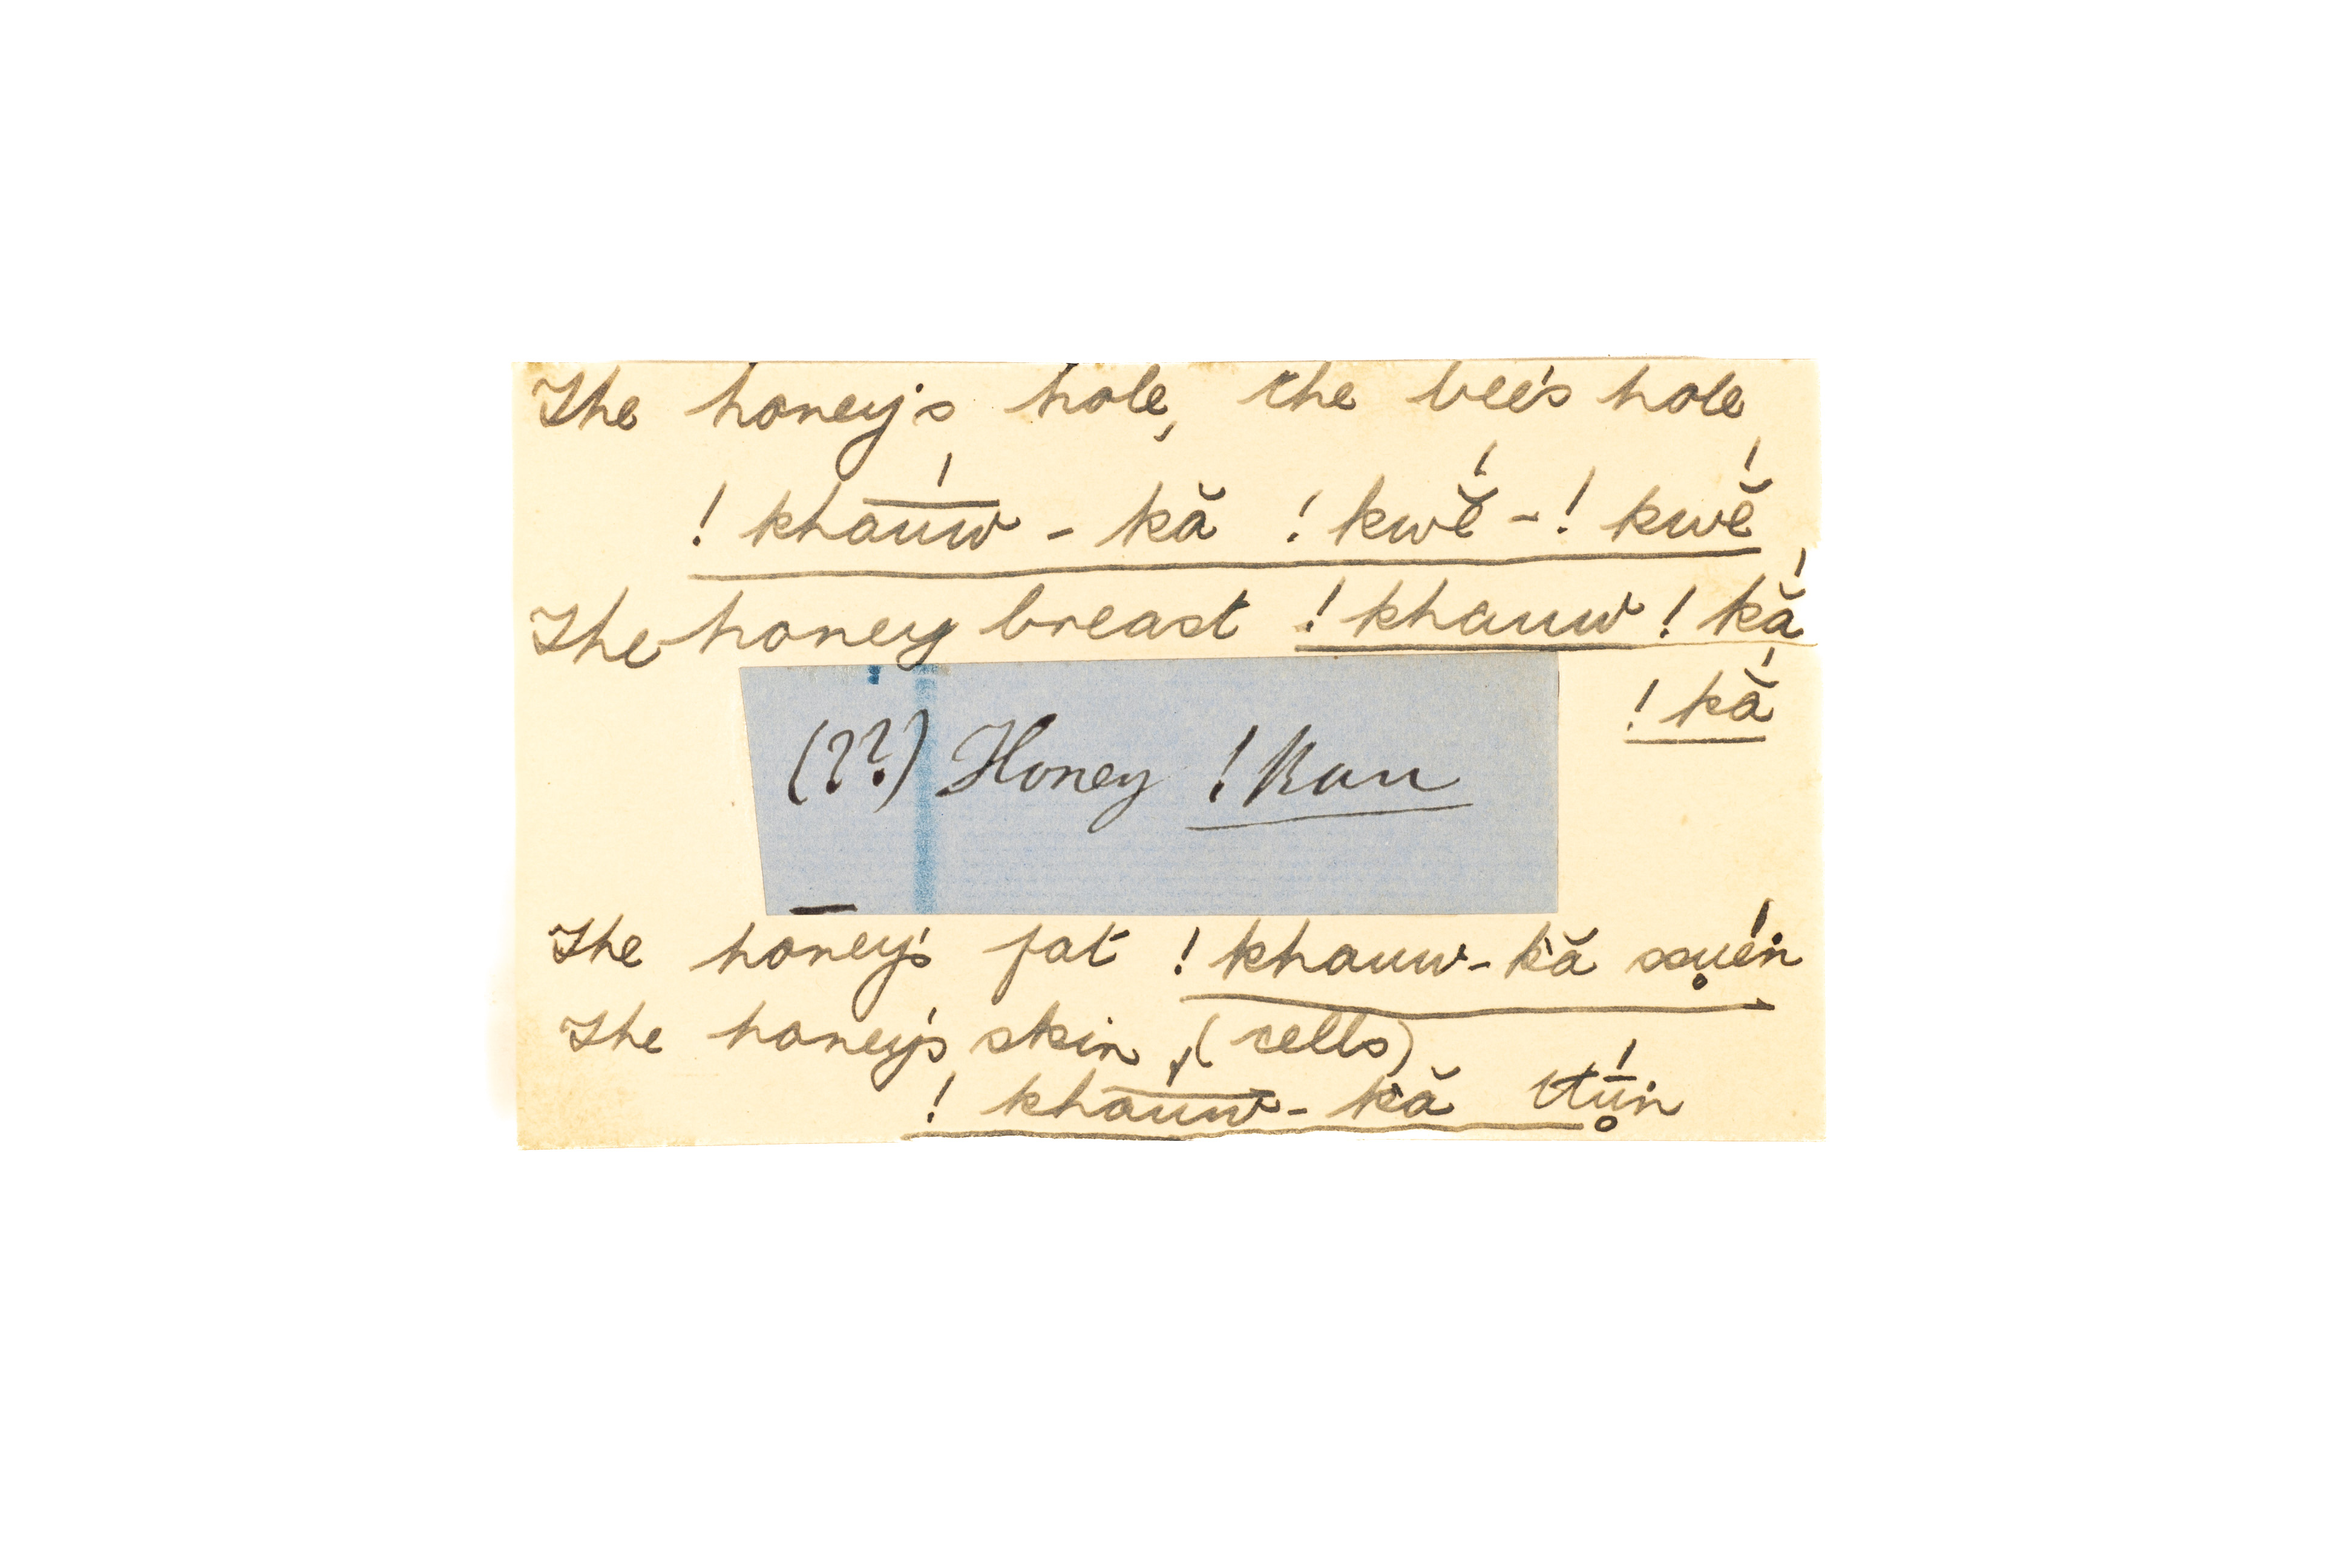 The honey's hole, the bee's hole,
!kha͞úw - kă !kwĕ́ - !kwĕ́
The honey breast !khauw !kắ
!kắ
(??) Honey !Kau
The honey's fat !khauw-kă
The honey's skin, (cells)
!kha͞úw-kă